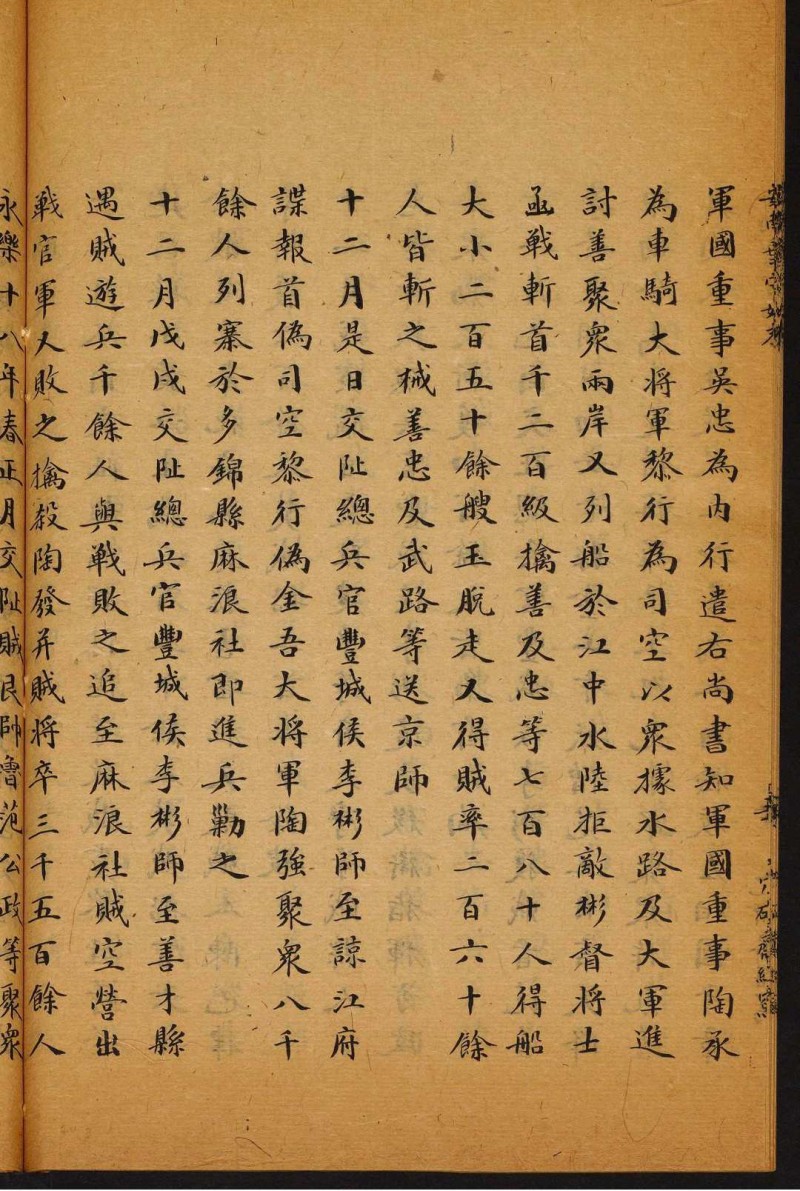 軍國重事吳忠為內行遣右尚書知軍國重事陶承
為車騎大將軍黎行為司空以衆據水路及大軍進
討善聚衆兩岸又列船於江中水陸拒敵彬督將士
函戰斬首千二百級擒善及忠等七百八十人得船
大小二百五十餘艘玉脫走又得賊率二百六十餘
人皆斬之械善忠及武路等送京師
十二月是日交阯總兵官豐城侯李彬師至諒江府
諜報首偽司空黎行偽金吾大將軍陶強聚衆八千
餘人列寨於多錦縣麻浪社即進兵勦之
十二月戊戌交阯總兵官豐城侯李彬師至善才縣
遇賊遊兵千餘人與戰敗之追至麻浪社賊空營出
戰官軍又敗之擒殺陶發并賊將卒三千五百餘人
永樂十八年春正月交阯賊
范公政等聚衆